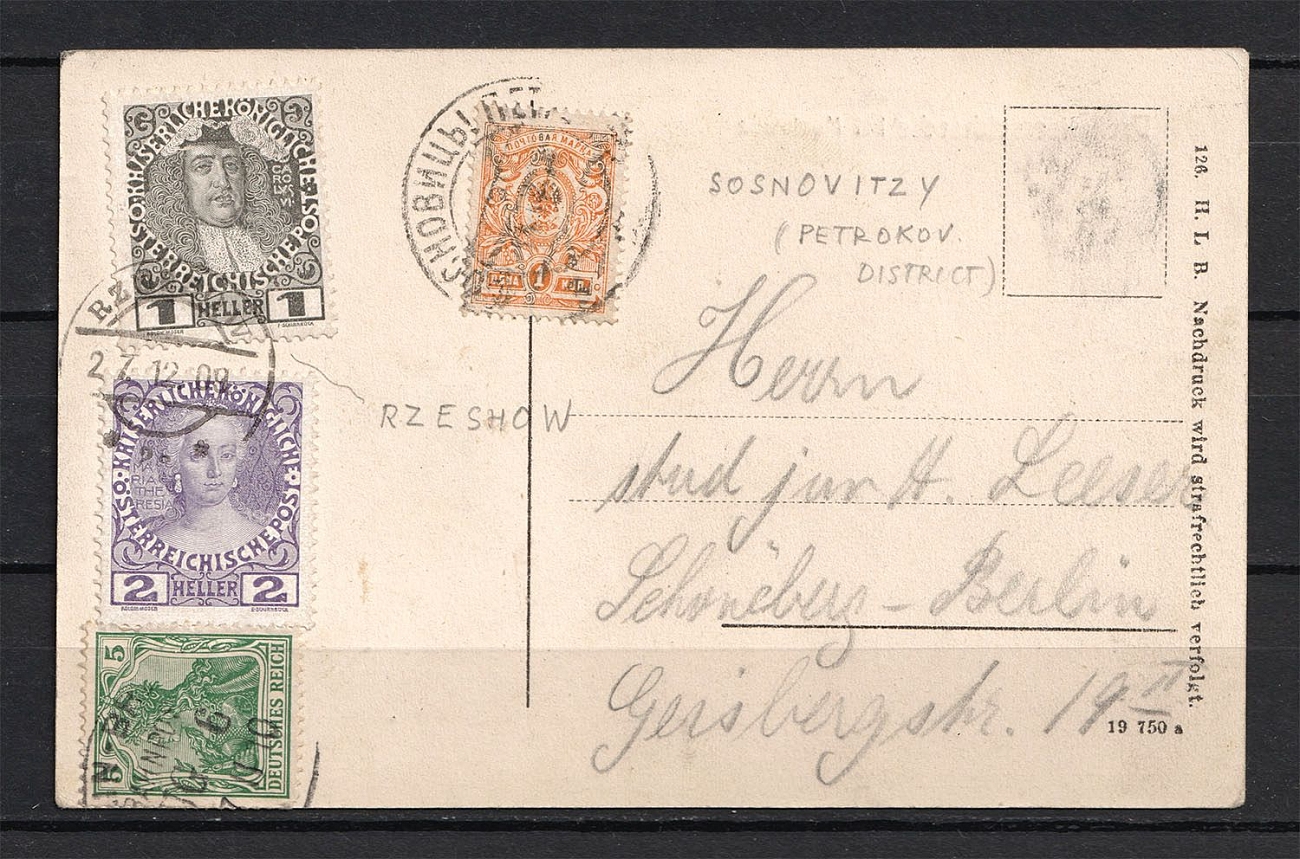 KAISERLICHE KÖNIGLICHE
ÖSTERREICHISCHE POST
1 HELLER 1
RZ
27.12.09
KAISERLICHE KÖNIGLICHE
ÖSTERREICHISCHE POST
MARIA THERESIA
2 HELLER 2
5
DEUTSCHES REICH
СНОВИЦЫ
ПОЧТОВАЯ МАРКА
1
SOSNOVITZY
(PETROKOV.
DISTRICT)
RZESHOW
Herrn
stud jur A. Leeser
Schöneberg – Berlin
Geisbergstr. 19 II
126. H. L. B. Nachdruck wird strafrechtlich verfolgt.
19 750 a